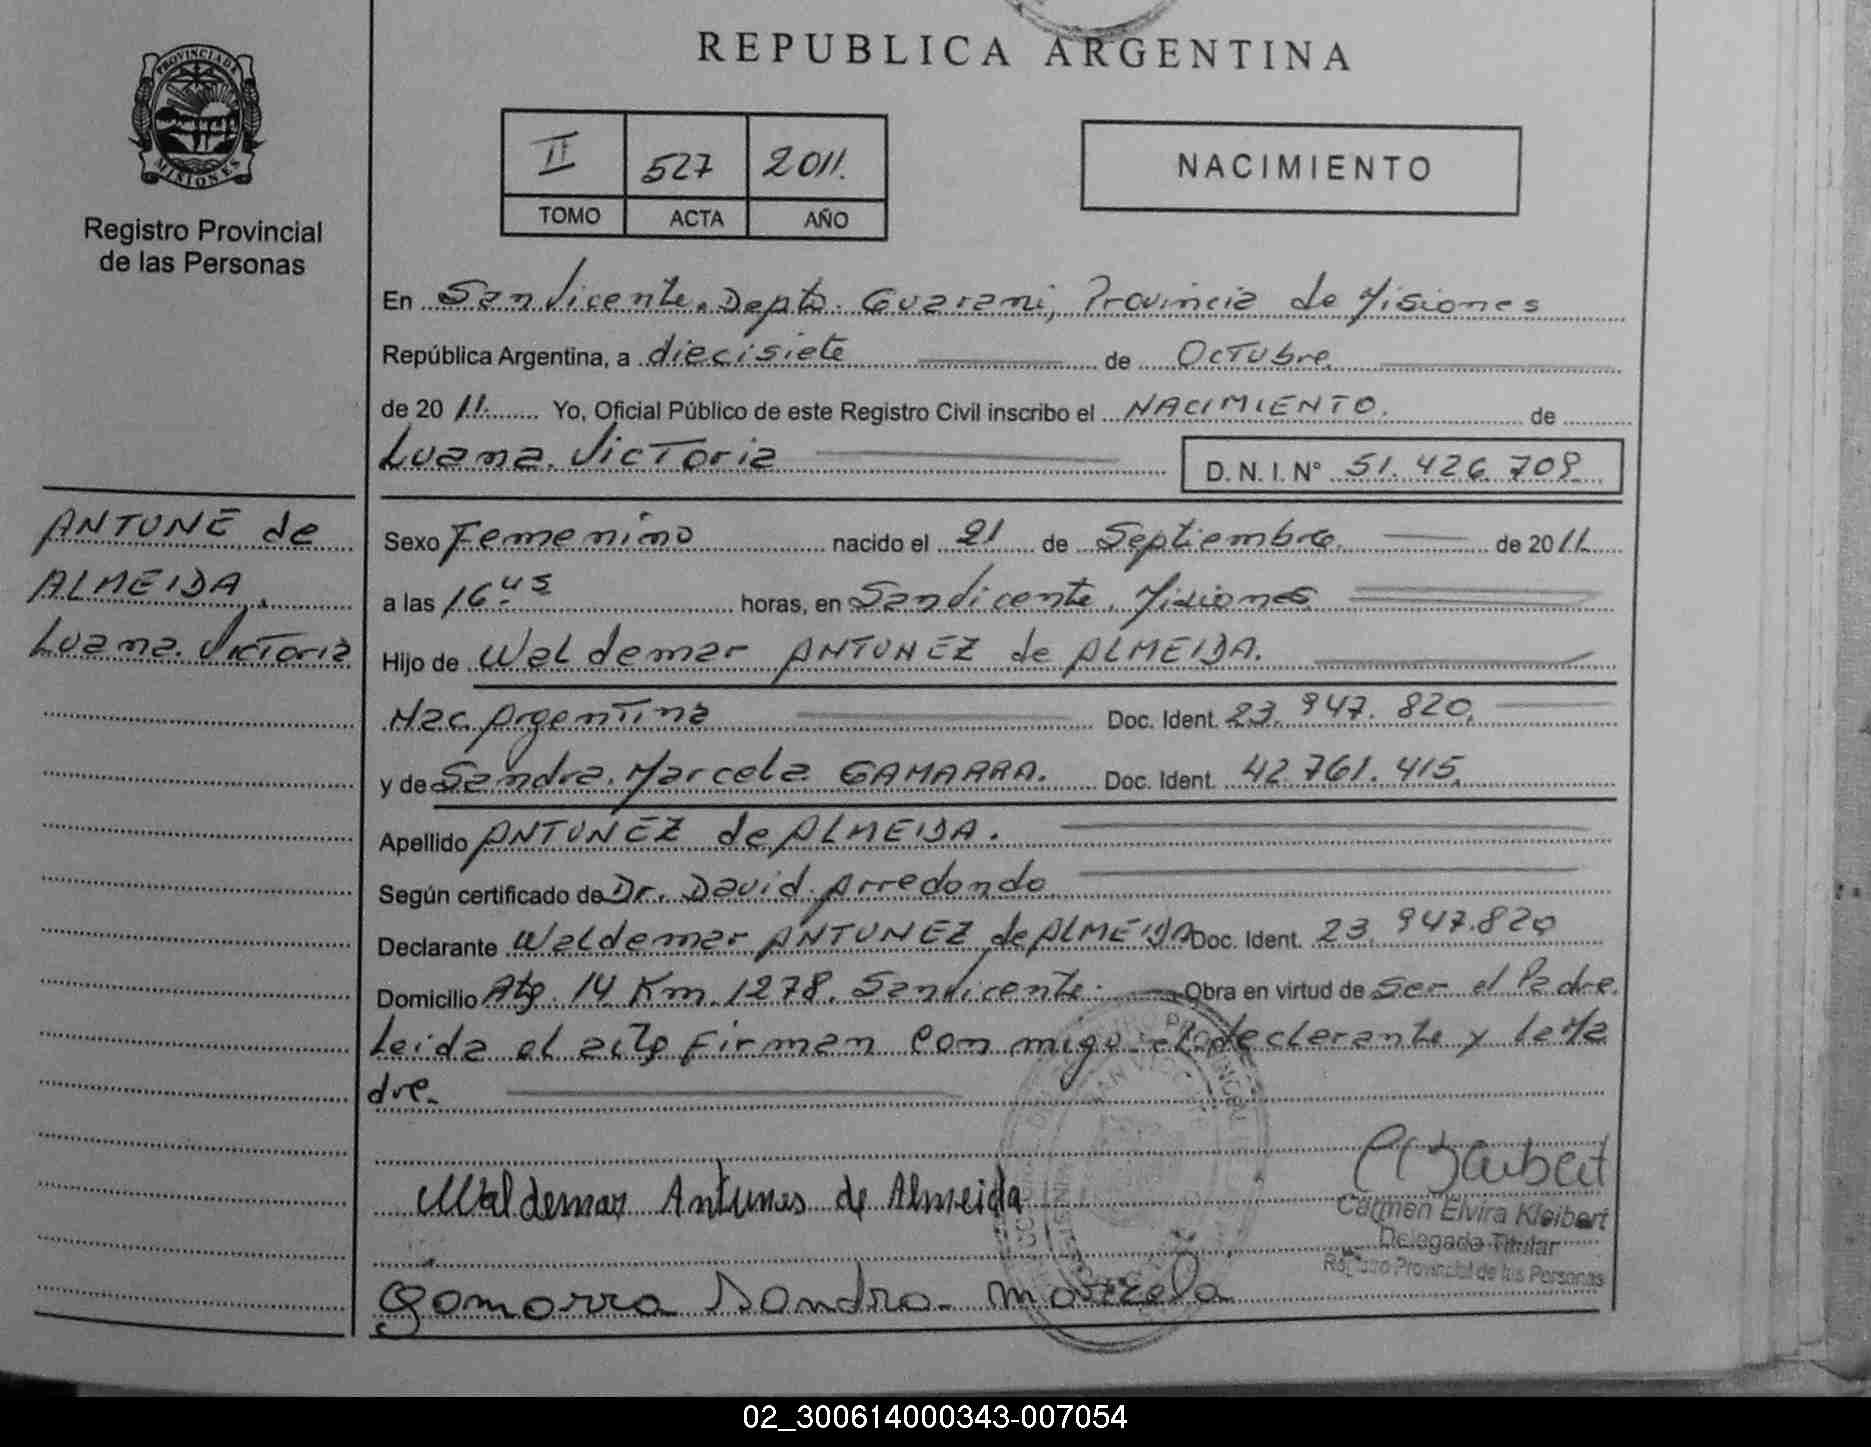 REPUBLICA ARGENTINA
PROVINCIA DE
MISIONES
Registro Provincial
de las Personas
II 527 2011.
TOMO ACTA AÑO
NACIMIENTO
En San Vicente. Depto. Guarani, Provincia de Misiones
República Argentina, a diecisiete de Octubre
de 2011. Yo, Oficial Público de este Registro Civil inscribo el NACIMIENTO. de
Luana. Victoria D. N. I. N° 51.426.709
ANTUNE de
ALMEIDA,
Luana. Victoria
Sexo Femenino nacido el 21 de Septiembre de 2011
a las 16 45 horas, en San Vicente, Misiones
Hijo de Waldemar ANTUNEZ de ALMEIDA.
Nac. Argentina Doc. Ident. 23.947.820.
y de Sandra. Marcela GAMARRA. Doc. Ident. 42.761.415.
Apellido ANTUNEZ de ALMEIDA.
Según certificado de Dr. David. Arredondo
Declarante Waldemar ANTUNEZ de ALMEIDA Doc. Ident. 23.947.820
Domicilio 14 Km. 1278. San Vicente. Obra en virtud de Ser el Padre.
Leida el acta Firman Con migo el declarante y la Ma
dre.
Waldemar Antunes de Almeida
Carmen Elvira Kleibert
Delegada Titular
Registro Provincial de las Personas
gamarra Sandra marcela
02_300614000343-007054